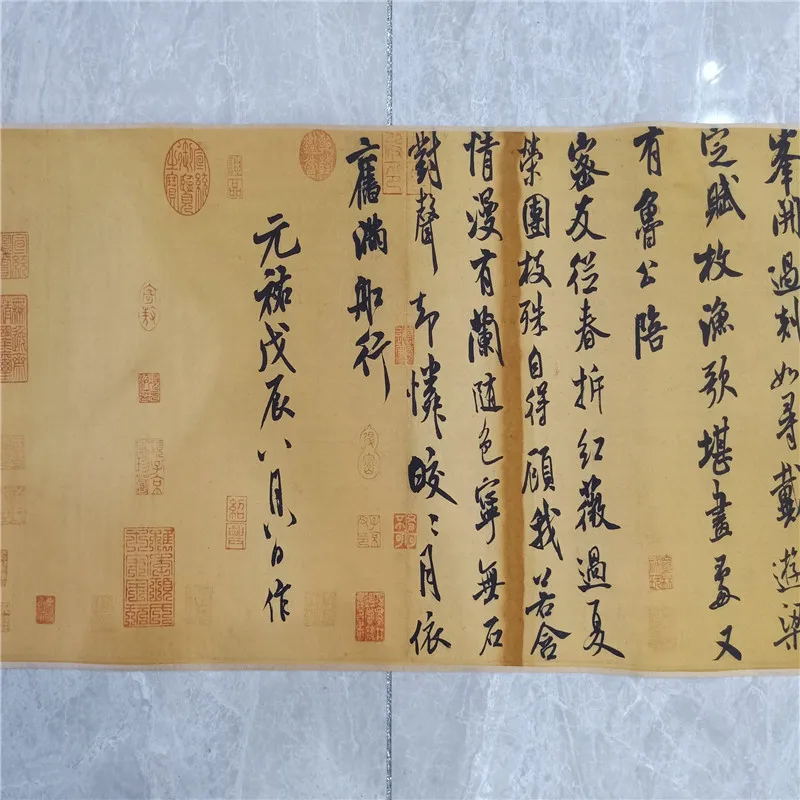 峯開過剡如尋戴遊梁
定賦枚漁歌堪畫處又
有魯公陪
密友從春拆紅薇過夏
榮團枝殊自得顧我若含
情漫有蘭隨色寧無石
對聲却憐皎〻月依
舊滿船行
元祐戊辰八月八日作
宣統御覽之寶
紹興